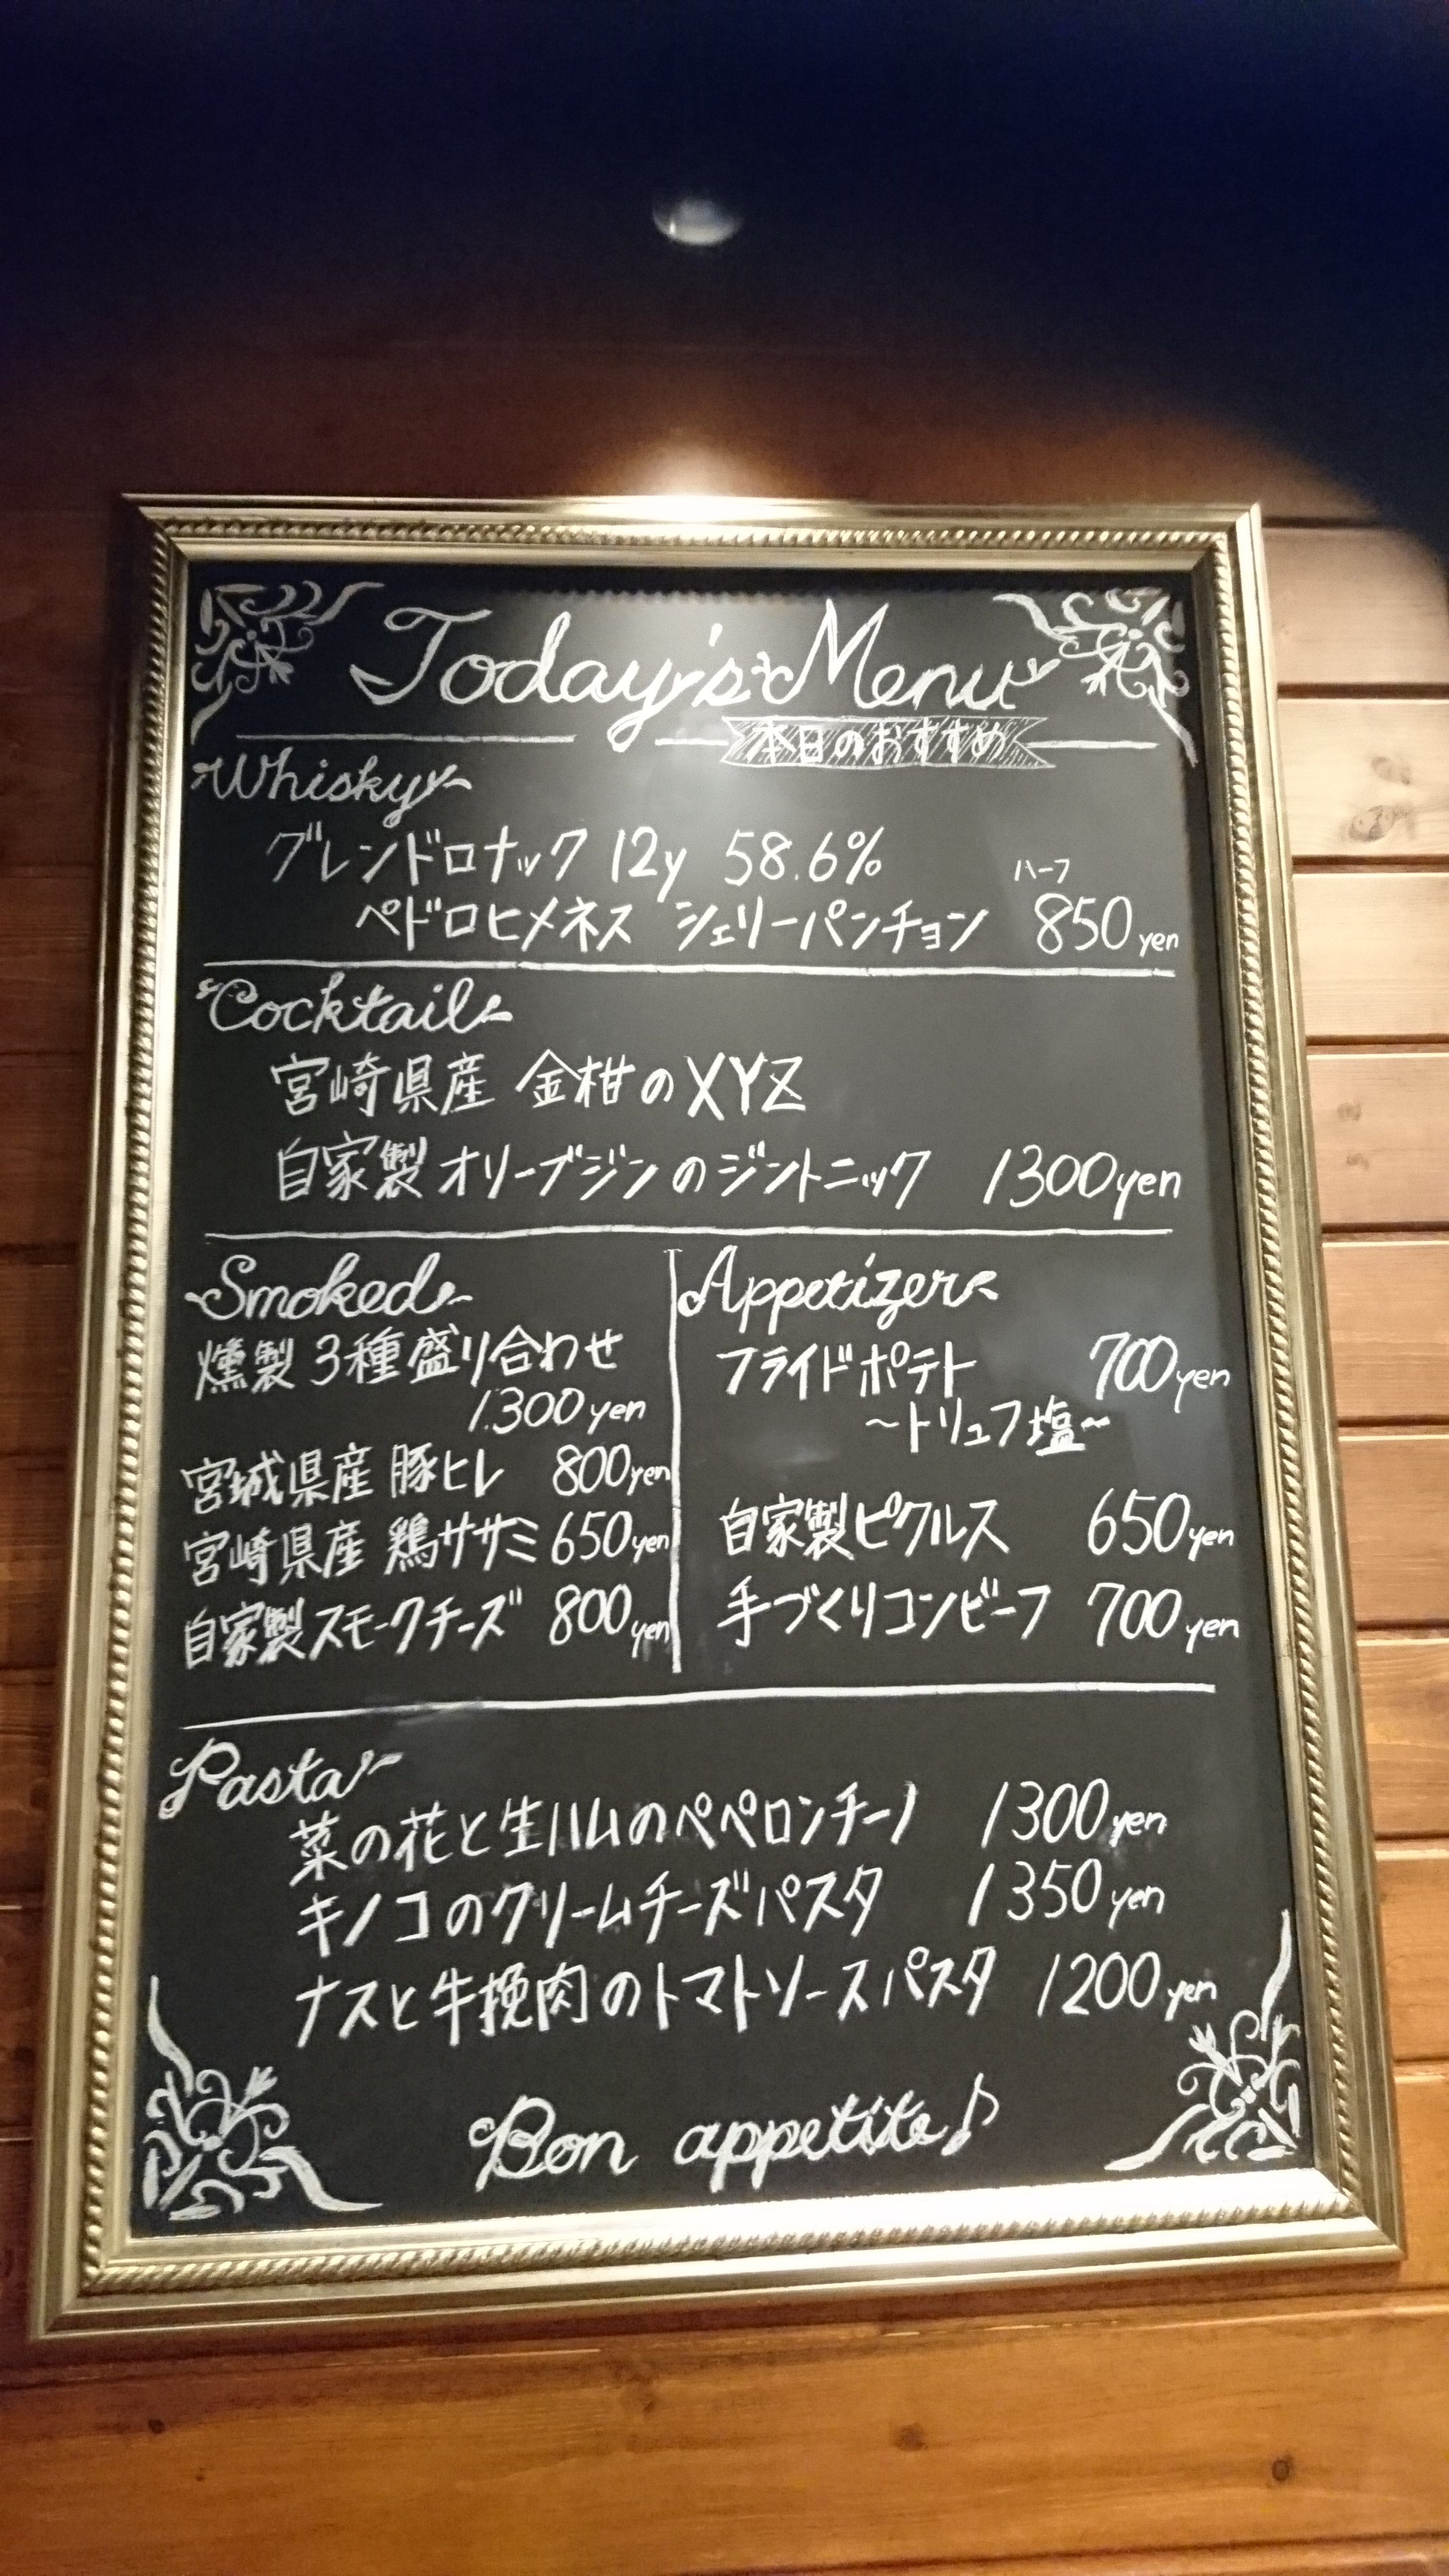 Today's Menu
本日のおすすめ
Whisky
グレンドロナック 12y 58.6%
ハーフ
ペドロヒメネス シェリーパンチョン 850yen
Cocktail
宮崎県産 金柑のXYZ
自家製オリーブジンのジントニック 1300yen
Smoked
燻製3種盛り合わせ
1.300yen
宮城県産 豚ヒレ 800yen
宮崎県産 鶏ササミ 650yen
自家製スモークチーズ 800yen
Appetizer
フライドポテト 700yen
～トリュフ塩～
自家製ピクルス 650yen
手づくりコンビーフ 700yen
Pasta
菜の花と生ハムのペペロンチーノ 1300yen
キノコのクリームチーズパスタ 1350yen
ナスと牛挽肉のトマトソースパスタ 1200yen
Bon appetite♪